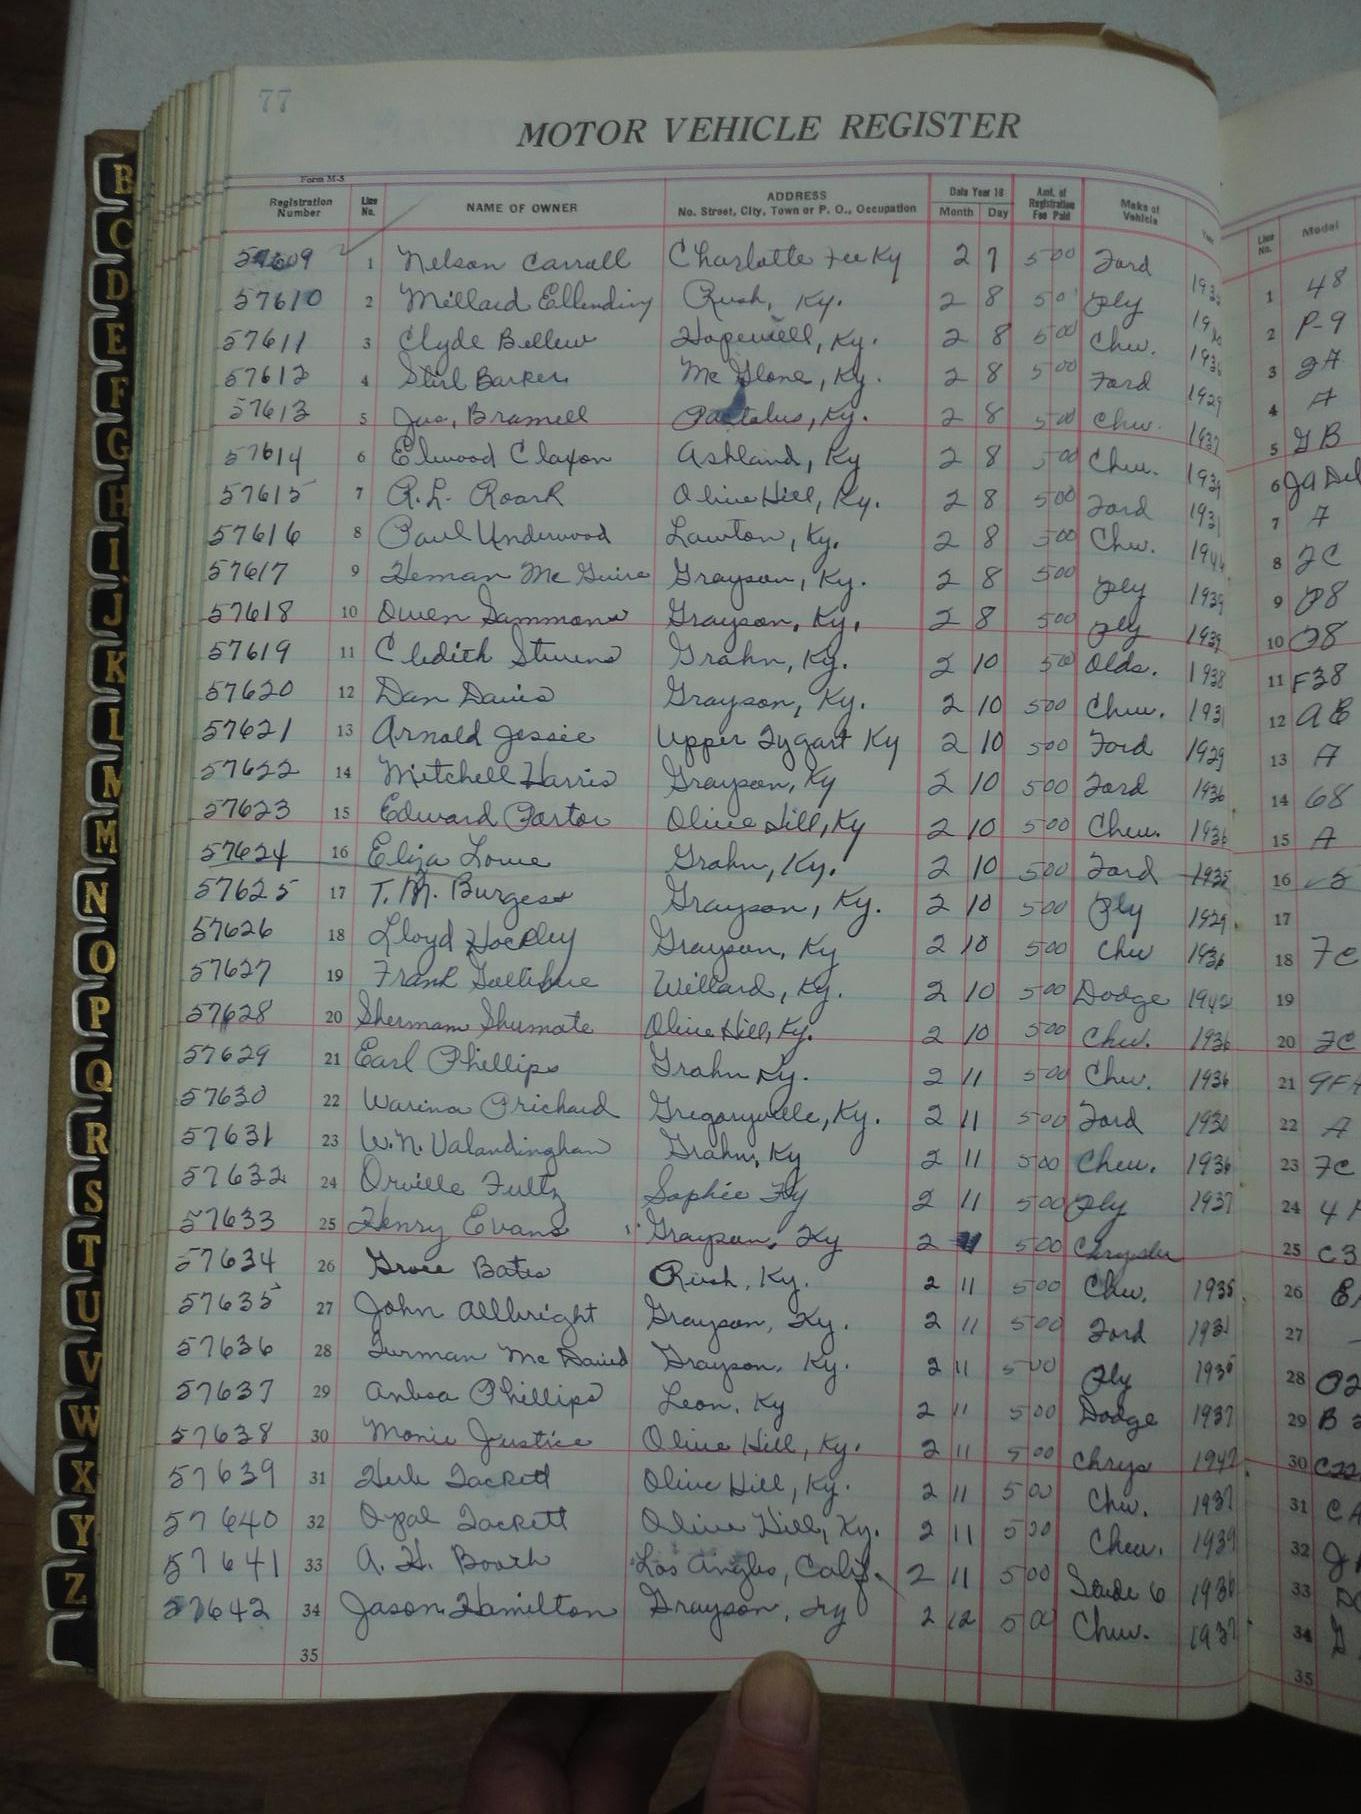 77
MOTOR VEHICLE REGISTER
Form M-5
Registration Number Line No. NAME OF OWNER ADDRESS No. Street, City, Town or P. O., Occupation Date Year 19 Month Day Amt. of Registration Fee Paid Make of Vehicle Year Line No. Model
57609 1 Nelson Carroll Charlotte Fee Ky 2 7 5 00 Ford 1 48
57610 2 Millard Ellending Rush, Ky. 2 8 5 0 Ply 2 P-9
57611 3 Clyde Bellew Hopewell, Ky. 2 8 5 00 Chev. 1936 3
57612 4 Stirl Barker Mc Glone, Ky. 2 8 5 00 Ford 1929 4 A
57613 5 Jas, Bramell Pactolus, Ky. 2 8 5 00 Chev. 1937 5 GB
57614 6 Elwood Claxon Ashland, Ky 2 8 5 00 Chev. 1939 6
57615 7 R. L. Roark Olive Hill, Ky. 2 8 5 00 Ford 1931 7 A
57616 8 Paul Underwood Lawton, Ky. 2 8 5 00 Chev. 8
57617 9 Heman Mc Guire Grayson, Ky. 2 8 5 00 Ply 1939 9 P8
57618 10 Owen Sammons Grayson, Ky. 2 8 5 00 Ply 1939 10
57619 11 Cledith Stevens Grahn, Ky. 2 10 5 00 Olds. 1938 11 F38
57620 12 Dan Davis Grayson, Ky. 2 10 5 00 Chev. 1931 12
57621 13 Arnold Jessie Upper Tygart Ky 2 10 5 00 Ford 1929 13 A
57622 14 Mitchell Harris Grayson, Ky 2 10 5 00 Ford 1936 14 68
57623 15 Edward Porter Olive Hill, Ky 2 10 5 00 Chev. 1936 15 A
57624 16 Eliza Lowe Grahn, Ky. 2 10 5 00 Ford 1935 16
57625 17 T. M. Burgess Grayson, Ky. 2 10 5 00 Ply 1929 17
57626 18 Lloyd Hockley Grayson, Ky 2 10 5 00 Chev 1936 18 FC
57627 19 Frank Gollihue Willard, Ky. 2 10 5 00 Dodge 1942 19
57628 20 Sherman Shumate Olive Hill, Ky. 2 10 5 00 Chev. 1936 20 FC
57629 21 Earl Phillips Grahn Ky. 2 11 5 00 Chev. 1936 21
57630 22 Warina Prichard Gregoryville, Ky. 2 11 5 00 Ford 1930 22 A
57631 23 W. N. Valandingham Grahn, Ky 2 11 5 00 Chev. 1936 23 FC
57632 24 Orville Fultz Sophie Ky 2 11 5 00 Ply 1937 24
57633 25 Henry Evans Grayson, Ky 2 5 00 Chrysler 25 C3
57634 26 Grace Bates Rush, Ky. 2 11 5 00 Chev. 1935 26
57635 27 John Allbright Grayson, Ky. 2 11 5 00 Ford 1931 27
57636 28 Furman Mc David Grayson, Ky. 2 11 5 00 Ply 28
57637 29 Anbsa Phillips Leon, Ky 2 11 5 00 Dodge 1937 29
57638 30 Monie Justice Olive Hill, Ky. 2 11 5 00 Chrys 1947 30
57639 31 Herb Tackett Olive Hill, Ky. 2 11 5 00 Chev. 1937 31 CA
57640 32 Opal Tackett Olive Hill, Ky. 2 11 5 00 Chev. 1939 32
57641 33 A. H. Booth Los Angles, Calif. 2 11 5 00 Stude 6 1936 33
57642 34 Jason Hamilton Grayson, Ky 2 12 5 00 Chev. 1937 34
35 35
B
C
D
E
F
G
H
I
J
K
L
M
M
N
O
P
Q
R
S
T
U
V
W
X
Y
Z